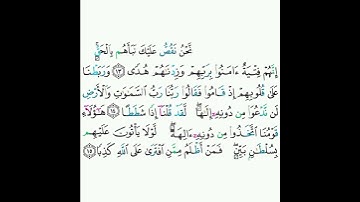 نَحْنُ نَقُصُّ عَلَيْكَ نَبَأَهُم بِٱلْحَقِّ ۚ
إِنَّهُمْ فِتْيَةٌ ءَامَنُوا۟ بِرَبِّهِمْ وَزِدْنَـٰهُمْ هُدًى ١٣ وَرَبَطْنَا
عَلَىٰ قُلُوبِهِمْ إِذْ قَامُوا۟ فَقَالُوا۟ رَبُّنَا رَبُّ ٱلسَّمَـٰوَٰتِ وَٱلْأَرْضِ
لَن نَّدْعُوَا۟ مِن دُونِهِۦٓ إِلَـٰهًا ۖ لَّقَدْ قُلْنَآ إِذًا شَطَطًا ١٤ هَـٰٓؤُلَآءِ
قَوْمُنَا ٱتَّخَذُوا۟ مِن دُونِهِۦٓ ءَالِهَةً ۖ لَّوْلَا يَأْتُونَ عَلَيْهِم
بِسُلْطَـٰنٍۭ بَيِّنٍ ۖ فَمَنْ أَظْلَمُ مِمَّنِ ٱفْتَرَىٰ عَلَى ٱللَّهِ كَذِبًا ١٥